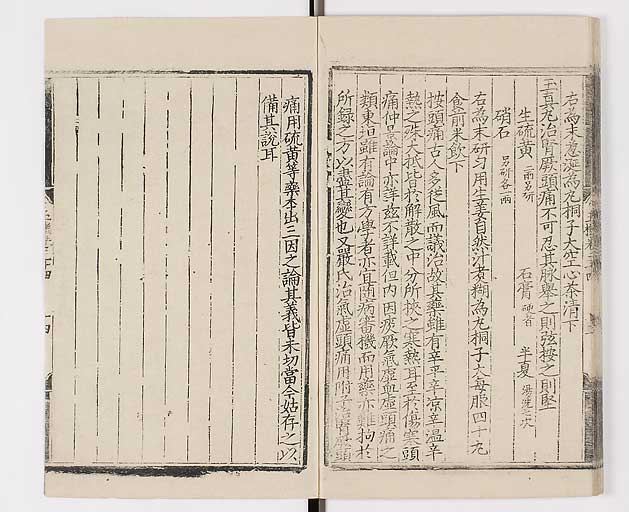 右為末葱涎為丸桐子大空心茶清下
玉真丸治腎厥頭痛不可忍其脉舉之則弦按之則堅
生硫黄 二兩另研 石膏 硬者 半夏 湯洗七次
硝石 另研各一兩
右為末研勻用生姜自然汁煮糊為丸桐子大每服四十丸
食前米飲下
按頭痛古人多從風而議治故其藥雖有辛平辛凉辛温辛
熱之殊大抵皆於解散之中分所挾之寒熱耳至於傷寒頭
痛仲景論中亦詳兹不詳載但内因痰厥氣虚血虚頭痛之
類東垣雖有論有方學者亦宜随病書機而用藥亦難拘於
所録之方以盡其變也又嚴氏治氣虚頭痛用附子腎厥頭
痛用硫黄等藥本出三因之論其義皆未切當今姑存之以
備其說耳